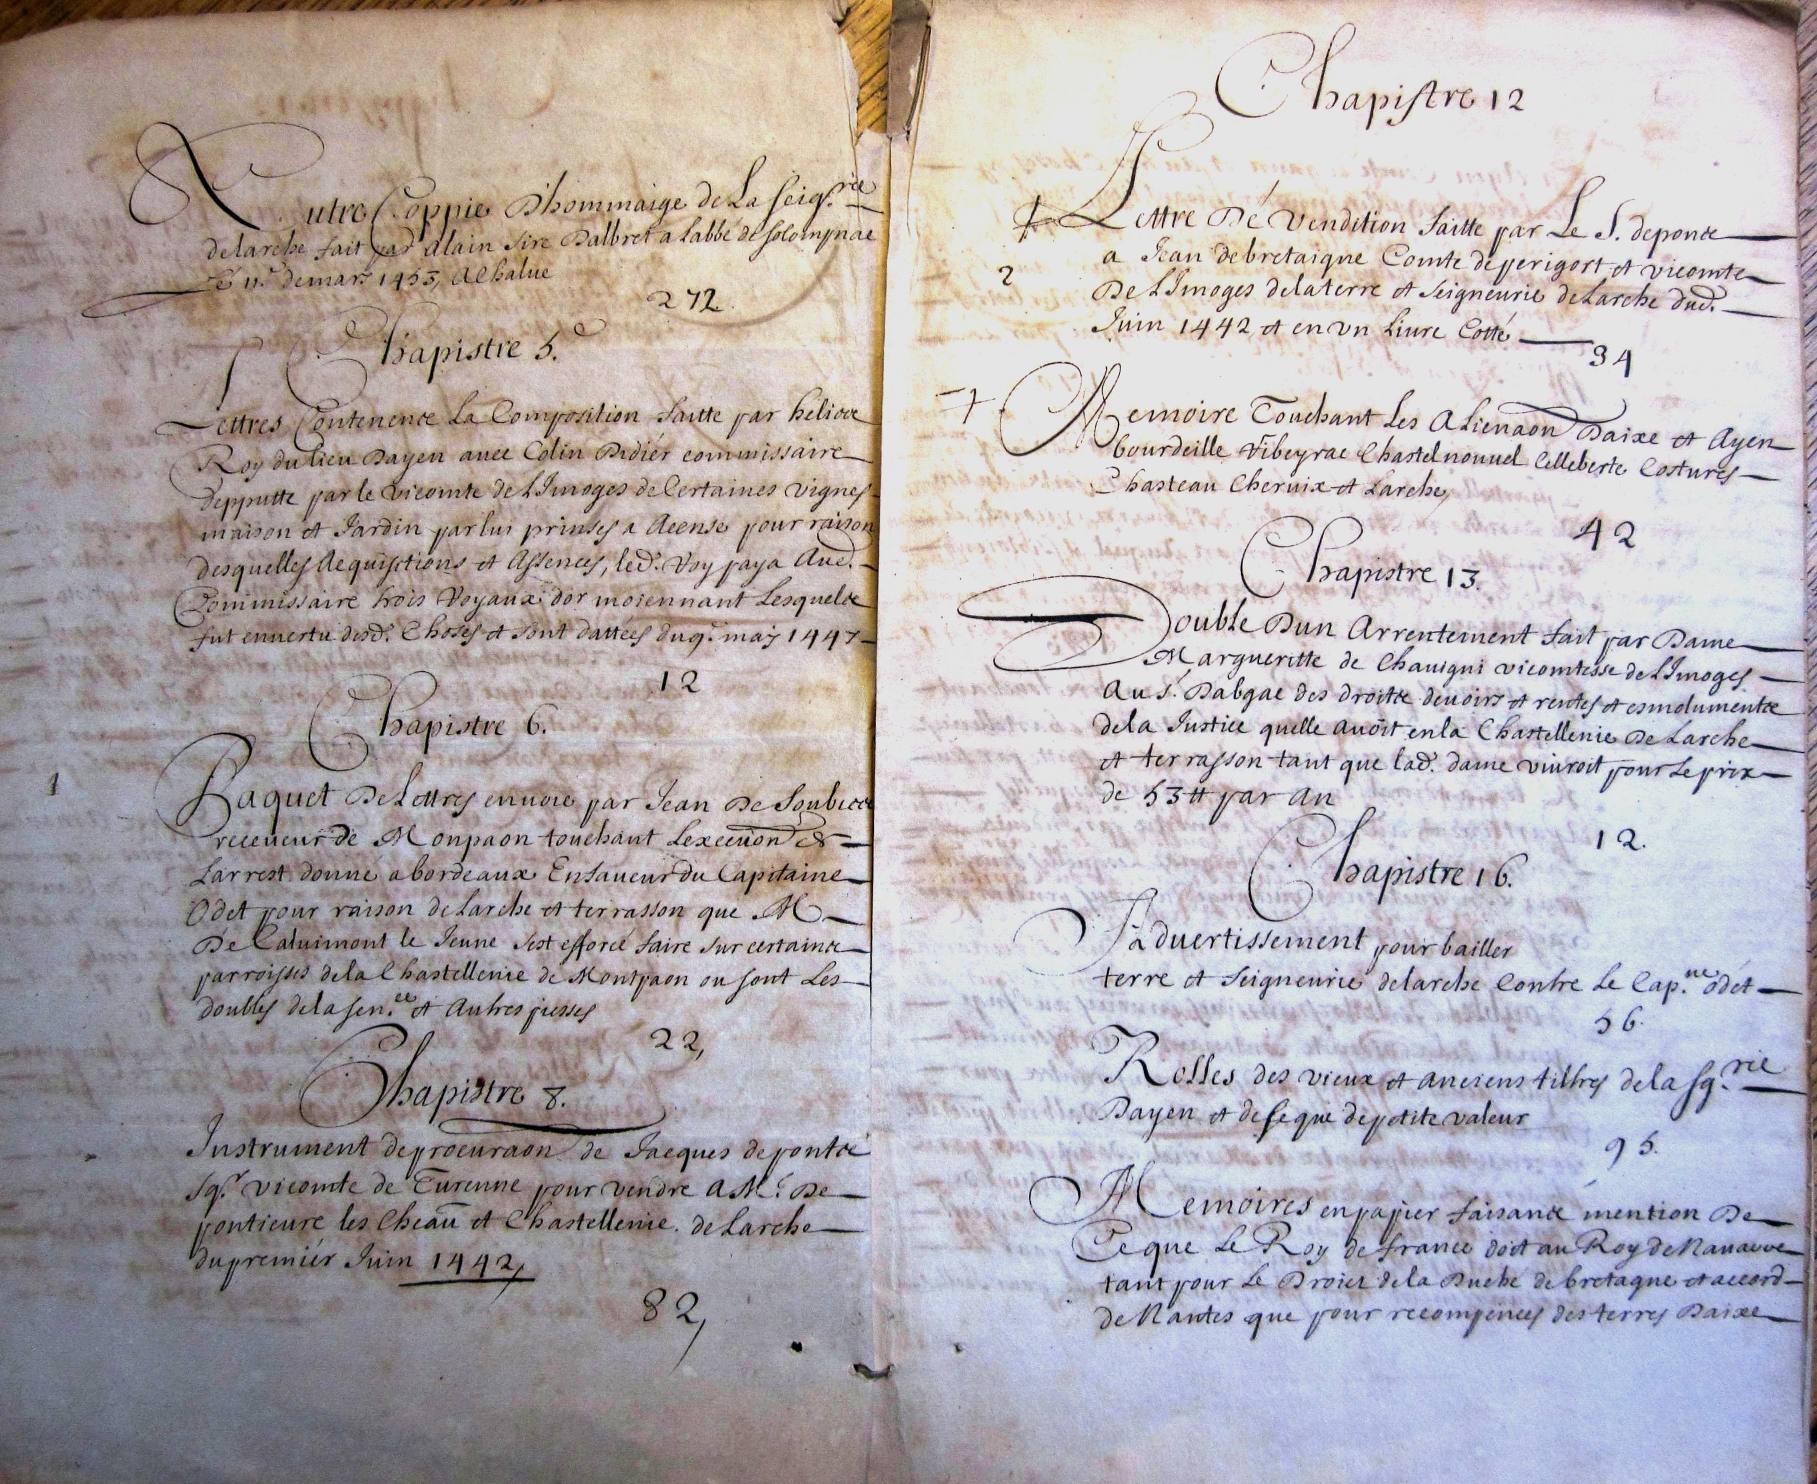 Autre Coppie D'hommaige de La Seig.rie
delarche fait par alain sire Dalbret a Labbe de solompnac
de mars 1453, a Chalue
272
Chapistre 5.e
Lettres Contenente La Composition faitte par heliote
Roy du lieu Dayen avec Colin Didiér commissaire
depputte par le vicomte de LImoges de Certaines vignes
maison et Jardin par lui prinses a Acense pour raison
desquelles Aequisitions et Assences, led. Roy paya Aud.
Commissaire trois Royaux dor moiennant Lesquelle
fut envertu desd. Choses et sont dattées du 9.e may 1447
12
Chapistre 6.
1
Paquet De Lettres envoie par Jean De Soubiete
receveur de Monpaon touchant Lexecuon de
Larrest donné a bordeaux En faveur du Capitaine
Odet pour raison de Larche et terrasson que M
De Caluimont le Jeune sest efforcé faire sur certainte
parroisses dela Chastellenie de Montpaon ou sont Les
doubles dela sen.ce et Autres piesses
22,
Chapistre 8.
Instrument de procuraon de Jacques de ponte
sg.r vicomte de Turenne pour vendre a M.r De
pontieure les Cheaū et Chastellenie de Larche
du premiér Juin 1442,
82,
Chapistre 12
Lettre Dé Vendition faitte par Le S. deponte
a Jean debretaigne Comte deperigort et vicomte
2
De LImoges delaterre et seigneurie de Larche dud.
Juin 1442 et en vn Liure Cotté
34
Memoire Touchant Les Alienaon Daixe et Ayen
bourdeille Vibeyrac Chastelnouuel Celleberte Costures
Chasteau Cheruix et Larche,
42
Chapistre 13.
Double Dun Arrentement fait par Dame
Margueritte de Chauigni vicomtesse de LImoges
Au S.r Dabzac des droitte deuoirs et rentes et esmolumente
dela Justice quelle avoit enla Chastellenie De Larche
et terrasson tant que lad. dame viuroit pour Le prix
de 53 tt par an
12.
Chapistre 16.
advertissement pour bailler
terre et seigneurie delarche Contre Le Cap.ne odet
56.
Rolles des vieux et anciens tiltres dela sg.rie
Dayen et de peque de petite valeur
95.
Memoires en papier faisante mention De
Ceque Le Roy de france doit au Roy de Nauarre
tant pour Le Droict dela Duché de bretagne et accord
de Nantes que pour recompences des terres Daixe